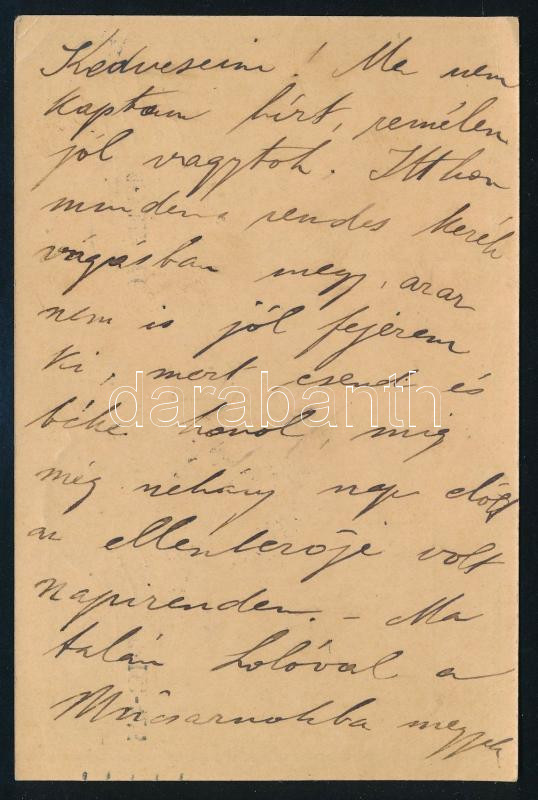 Kedveseim! Ma nem
kaptam hírt, remélem
jól vagytok. Itthon
minden a rendes kerék
vágásban megy, azaz
nem is jól fejezem
ki, mert csend és
béke honol, míg
még néhány nap előtt
az ellenkezője volt
napirenden. – Ma
talán Lolóval a
Műcsarnokba megyek
darabanth